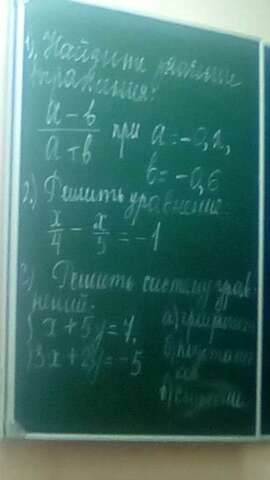 1) Найдите значение
выражения:
a - b
a + b
при a = -0,2,
b = -0,6
2) Решить уравнение:
x/4 - x/5 = -1
3) Решить систему урав-
нений.
{ x + 5y = 7,
3x + 2y = -5
а) графичес
б)
в)